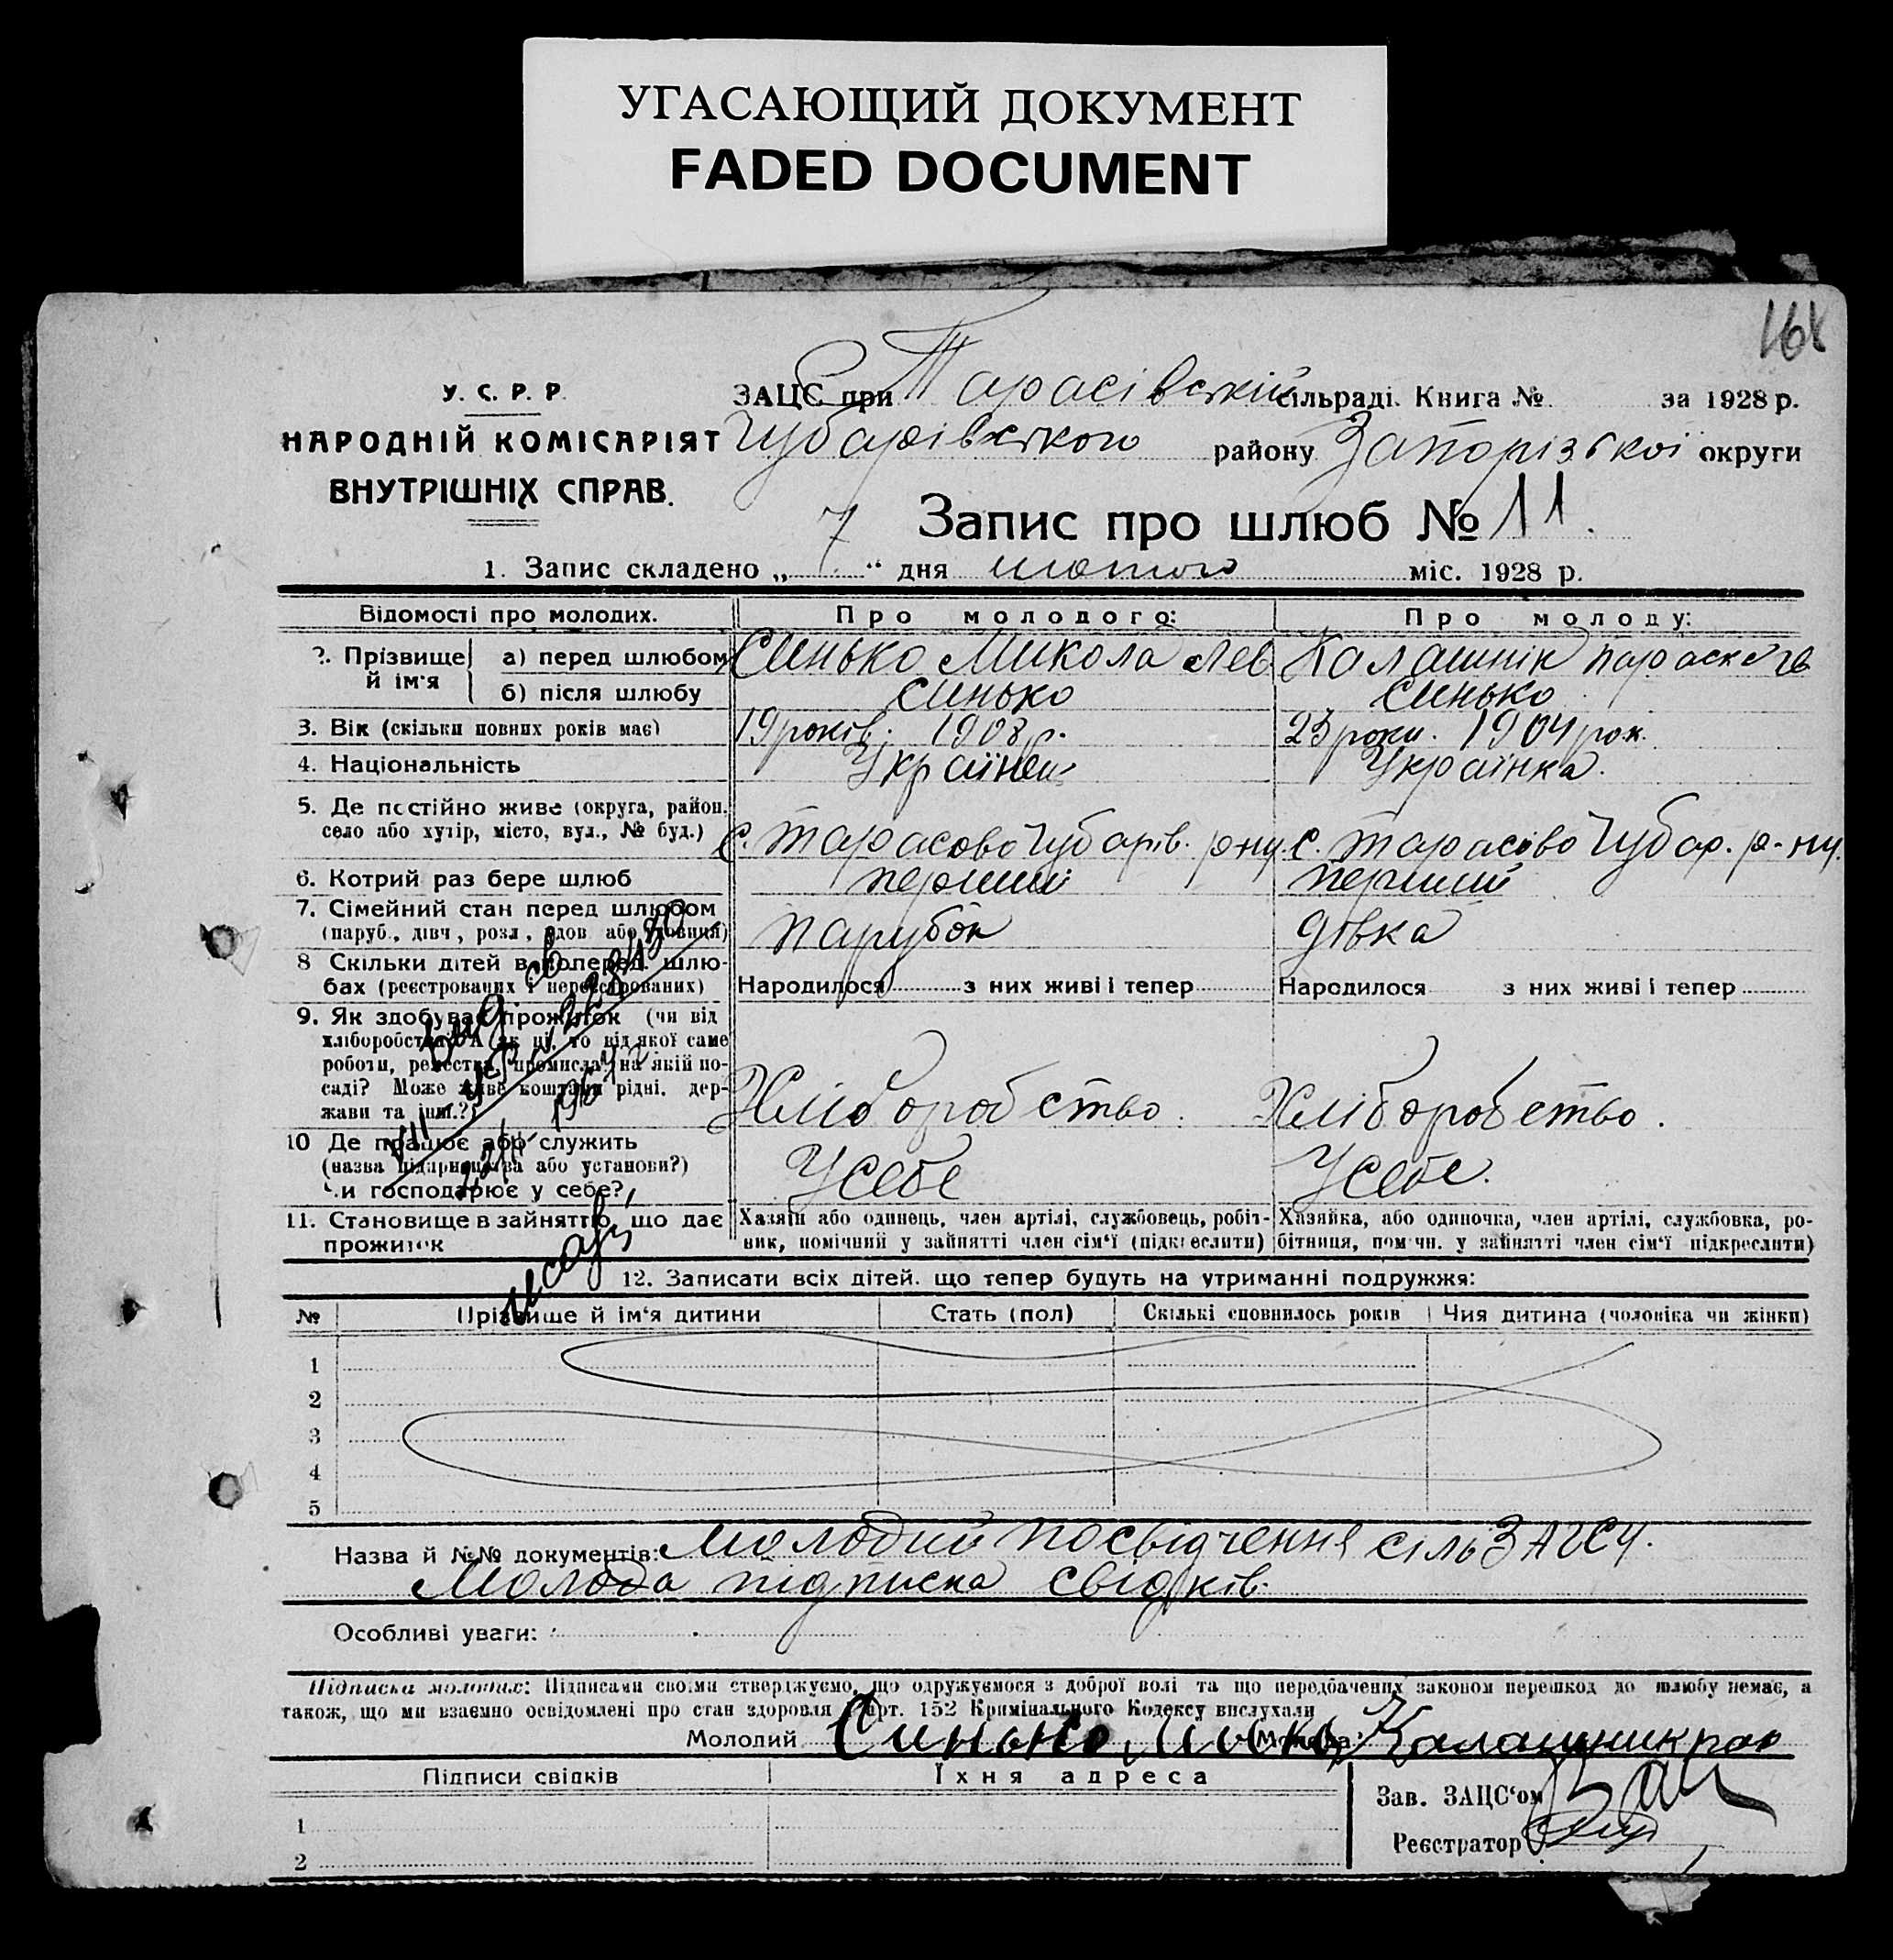 УГАСАЮЩИЙ ДОКУМЕНТ
FADED DOCUMENT
168
У. С. Р. Р.
НАРОДНІЙ КОМІСАРІЯТ
ВНУТРІШНІХ СПРАВ.
ЗАЦС при Тарасівській сільраді. Книга № за 1928 р.
Чубарівського району Запорізької округи
Запис про шлюб № 11.
1. Запис складено „ 7 “ дня лютого міс. 1928 р.
Відомості про молодих. Про молодого: Про молоду:
2. Прізвище й ім'я а) перед шлюбом Синько Микола Лев Калашнік Параск
б) після шлюбу Синько Синько
3. Вік (скільки повних років має) 19 років. 1908 р. 23 роки. 1904 рок.
4. Національність Українец Українка.
5. Де постійно живе (округа, район. село або хутір, місто, вул., № буд.) с. Тарасово Чубарів. р-ну. с. Тарасово Чубар. р-ну.
6. Котрий раз бере шлюб перший перший
7. Сімейний стан перед шлюбом (паруб., дівч., розл., вдов. або вдовиця) парубок дівка
8 Скільки дітей в поперед. шлюбах (реєстрованих і нереєстрованих) Народилося з них живі і тепер Народилося з них живі і тепер
9. Як здобуває прожиток (чи від хліборобства? А як ні, то від якої саме роботи, ремества, промисла, на якій посаді? Може живе коштами рідні, держави та інш.?) Хліборобство. Хліборобство.
10 Де працює або служить (назва підприємства або установи?) Чи господарює у себе? У себе У себе.
11. Становище в зайнятті, що дає прожиток
Хазяїн або одинець, член артілі, службовець, робітник, помічний у зайнятті член сім'ї (підкреслити)
Хазяйка, або одиночка, член артілі, службовка, робітниця, помічн. у зайнятті член сім'ї підкреслити)
12. Записати всіх дітей, що тепер будуть на утриманні подружжя:
№ Прізвише й ім'я дитини Стать (пол) Скількі сповнилось років Чия дитина (чоловіка чи жінки)
1
2
3
4
5
Назва й №№ документів: Молодий посвідчення сіль ЗАГСу.
Молода підписка свідків.
Особливі уваги:
Підписка молодих: Підписами своїми стверджуємо, що одружуємося з доброї волі та що передбачених законом перешкод до шлюбу немає, а
також, що ми взаємно освідомлені про стан здоровля і арт. 152 Кримінального Кодексу вислухали
Молодий Синько Молода: Калашник
Підписи свідків Їхня адреса
Зав. ЗАЦС'ом
1
Реєстратор
2